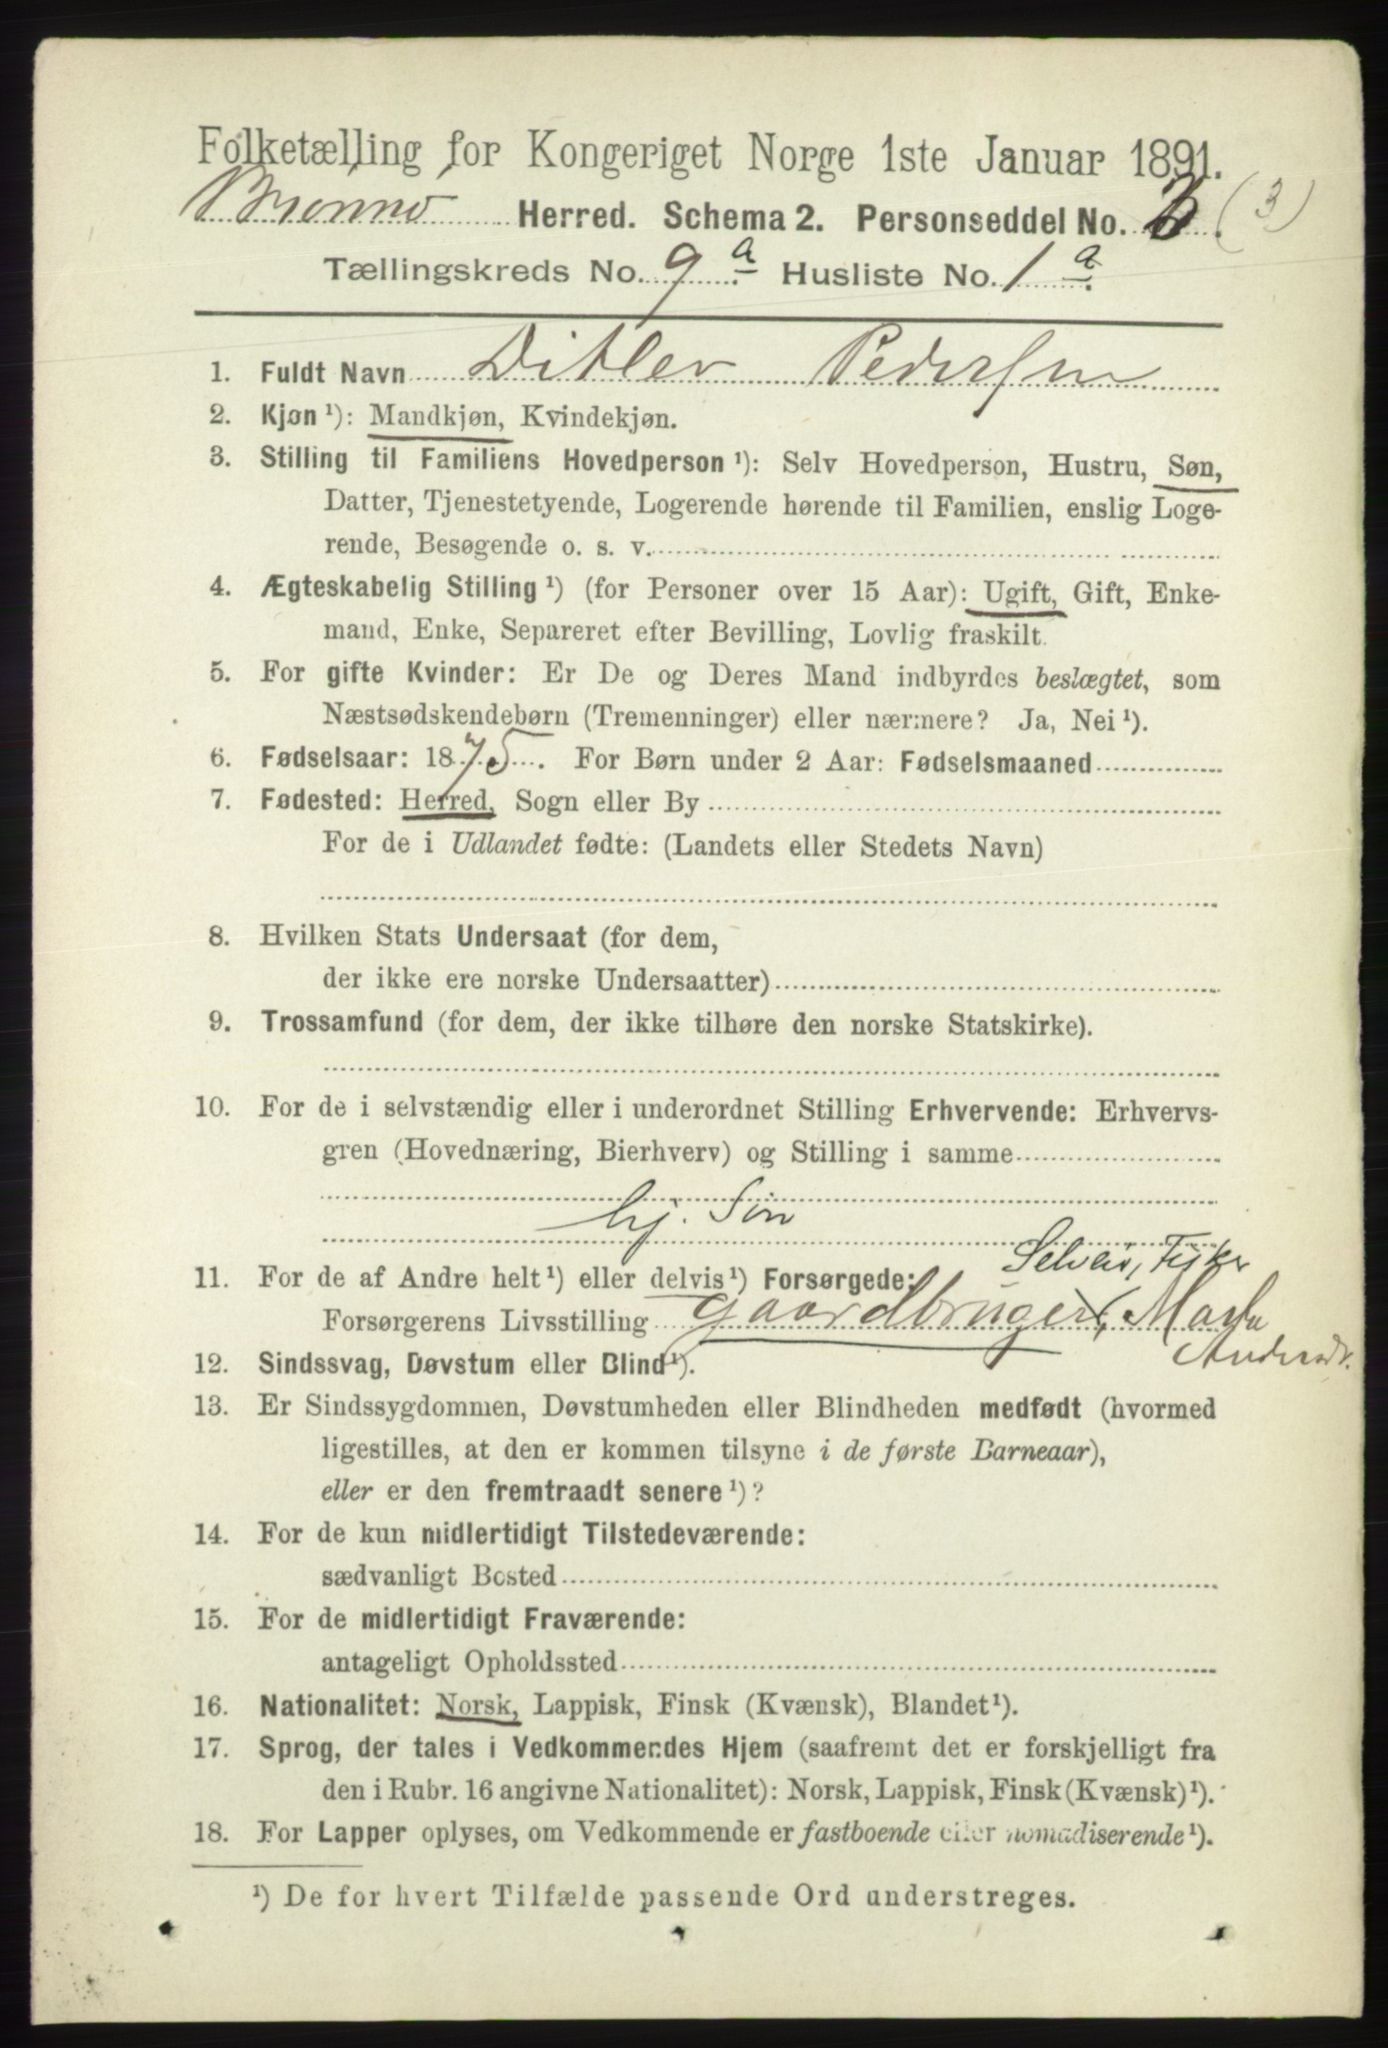 Folketælling for Kongeriget Norge 1ste Januar 1891.
Brønnø Herred. Schema 2. Personseddel No. 3. (3)
Tællingskreds No. 9 a. Husliste No. 1 a.
1. Fuldt Navn Ditlev Pedersen
2. Kjøn ¹): Mandkjøn, Kvindekjøn.
3. Stilling til Familiens Hovedperson ¹): Selv Hovedperson, Hustru, Søn,
Datter, Tjenestetyende, Logerende hørende til Familien, enslig Loge-
rende, Besøgende o. s. v.
4. Ægteskabelig Stilling ¹) (for Personer over 15 Aar): Ugift, Gift, Enke-
mand, Enke, Separeret efter Bevilling, Lovlig fraskilt.
5. For gifte Kvinder: Er De og Deres Mand indbyrdes beslægtet, som
Næstsødskendebørn (Tremenninger) eller nærmere? Ja, Nei ¹).
6. Fødselsaar: 1875. For Børn under 2 Aar: Fødselsmaaned
7. Fødested: Herred, Sogn eller By
For de i Udlandet fødte: (Landets eller Stedets Navn)
8. Hvilken Stats Undersaat (for dem,
der ikke ere norske Undersaatter)
9. Trossamfund (for dem, der ikke tilhøre den norske Statskirke).
10. For de i selvstændig eller i underordnet Stilling Erhvervende: Erhvervs-
gren (Hovednæring, Bierhverv) og Stilling i samme
hj. Søn
Selveier, Fisker
11. For de af Andre helt ¹) eller delvis ¹) Forsørgede:
Forsørgerens Livsstilling gaardbruger,
12. Sindssvag, Døvstum eller Blind ¹).
13. Er Sindssygdommen, Døvstumheden eller Blindheden medfødt (hvormed
ligestilles, at den er kommen tilsyne i de første Barneaar),
eller er den fremtraadt senere ¹)?
14. For de kun midlertidigt Tilstedeværende:
sædvanligt Bosted
15. For de midlertidigt Fraværende:
antageligt Opholdssted
16. Nationalitet: Norsk, Lappisk, Finsk (Kvænsk), Blandet ¹).
17. Sprog, der tales i Vedkommendes Hjem (saafremt det er forskjelligt fra
den i Rubr. 16 angivne Nationalitet): Norsk, Lappisk, Finsk (Kvænsk) ¹).
18. For Lapper oplyses, om Vedkommende er fastboende eller nomadiserende ¹).
¹) De for hvert Tilfælde passende Ord understreges.